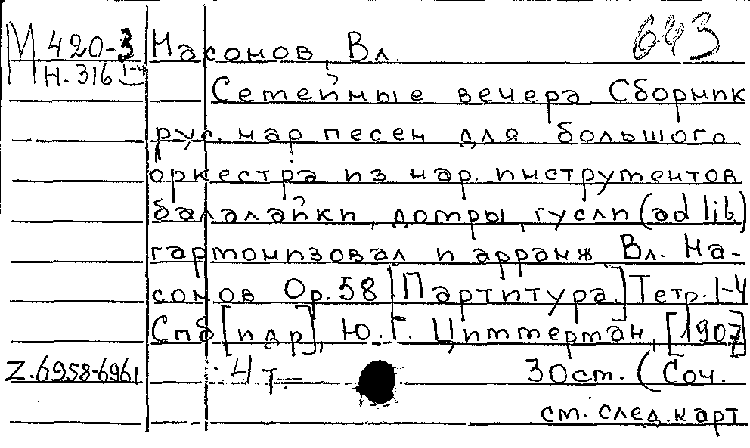 М 420-3 Насонов, Вл. 643
Н. 316 1-4
Семейные вечера Сборник
рус. нар песен для большого
оркестра из нар. инструментов
балалайки, домры, гусли (ad lib)
гармонизовал и арранж Вл. На-
сонов Op. 58 [Партитура.] Тетр. 1-4
Спб [и др], Ю. Г. Циммерман, [1907]
Z.6958-6961 4 т.– 30 см. (Соч.
см. след. карт